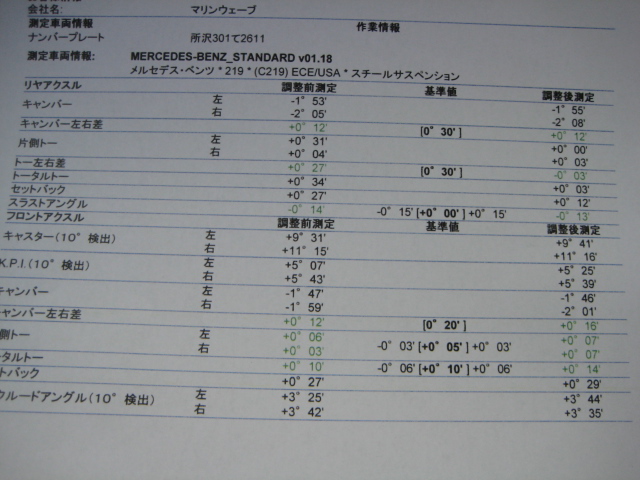 会社名: マリンウェーブ
測定車両情報 作業情報
ナンバープレート 所沢301て2611
測定車両情報: MERCEDES-BENZ_STANDARD v01.18
メルセデス・ベンツ * 219 * (C219) ECE/USA * スチールサスペンション
リヤアクスル 調整前測定 基準値 調整後測定
キャンバー 左 -1° 53' -1° 55'
右 -2° 05' -2° 08'
キャンバー左右差 +0° 12' [0° 30' ] +0° 12'
片側トー 左 +0° 31' +0° 00'
右 +0° 04' +0° 03'
トー左右差 +0° 27' [0° 30' ] -0° 03'
トータルトー +0° 34' +0° 03'
セットバック +0° 27' +0° 12'
スラストアングル -0° 14' -0° 15' [+0° 00' ] +0° 15' -0° 13'
フロントアクスル 調整前測定 基準値 調整後測定
キャスター(10° 検出) 左 +9° 31' +9° 41'
右 +11° 15' +11° 16'
K.P.I.(10° 検出) 左 +5° 07' +5° 25'
右 +5° 43' +5° 39'
キャンバー 左 -1° 47' -1° 46'
右 -1° 59' -2° 01'
ャンバー左右差 +0° 12' [0° 20' ] +0° 16'
側トー 左 +0° 06' -0° 03' [+0° 05' ] +0° 03' +0° 07'
右 +0° 03' +0° 07'
タルトー +0° 10' -0° 06' [+0° 10' ] +0° 06' +0° 14'
トバック +0° 27' +0° 29'
クルードアングル(10° 検出) 左 +3° 25' +3° 44'
右 +3° 42' +3° 35'